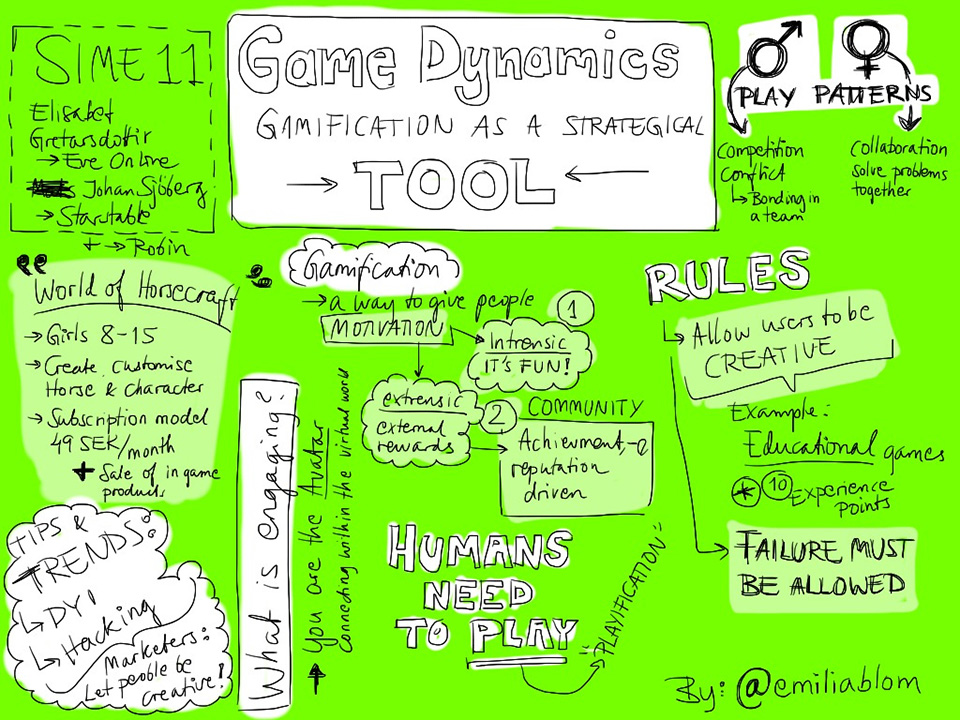 SIME 11
Elisabet
Gretarsdottir
→ Eve Online
Johan Sjöberg
→ Starstable
+ → Robin
Game Dynamics
GAMIFICATION AS A STRATEGICAL
→ TOOL ←
♂ ♀
PLAY PATTERNS
Competition
Conflict
↳ Bonding in
a team
Collaboration
solve problems
together
World of Horsecraft
→ Girls 8-15
→ Create, customise
Horse & Character
→ Subscription model
49 SEK/month
+ Sale of in game
products
TIPS &
TRENDS:
↳ DYI
↳ Hacking
Marketers:
Let people be
creative!
What is engaging?
↑ You are the Avatar
Connecting within the virtual world
Gamification
→ a way to give people
MOTIVATION
1
Intrensic
IT'S FUN!
extrensic
external
rewards
2 COMMUNITY
Achievment, -e
reputation
driven
HUMANS
NEED
TO PLAY
"PLAYIFICATION"
RULES
↳ Allow users to be
CREATIVE
Example:
Educational games
* 10 Experience
Points
→ FAILURE MUST
BE ALLOWED
By: @emiliablom